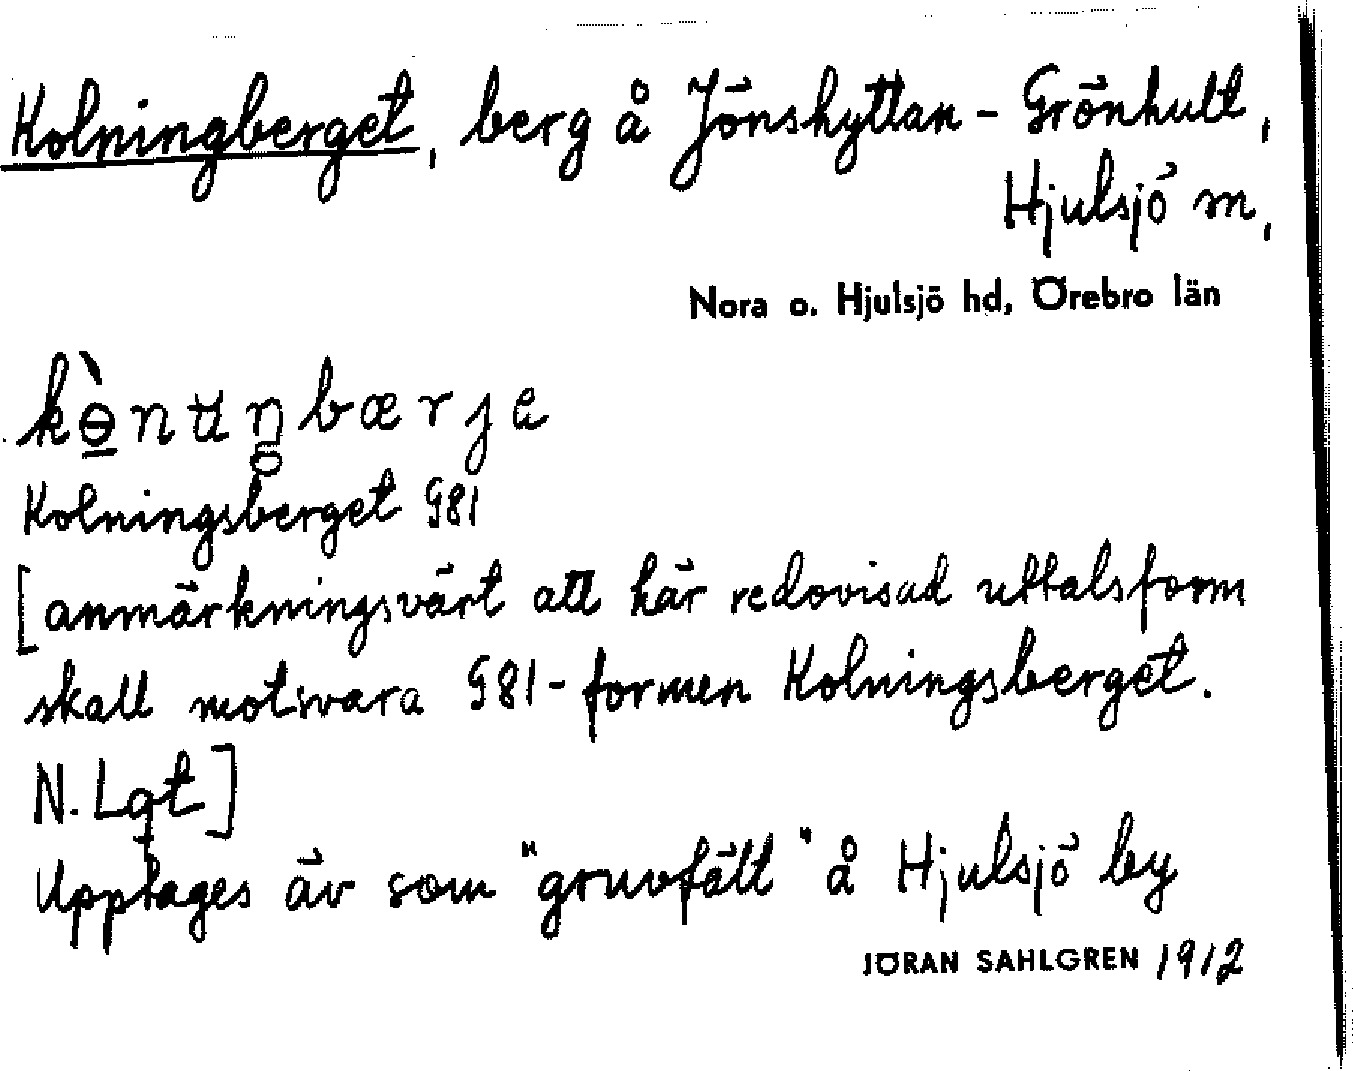 Kolningberget, berg å Jönshyttan - Grönhult,
Hjulsjö m,
Nora o. Hjulsjö hd, Örebro län
Kolningsberget G81
[anmärkningsvärt att här redovisad uttalsform
skall motsvara G81-formen Kolningsberget.
N. Lqt]
Upptages äv som "gruvfält" å Hjulsjö by
JÖRAN SAHLGREN 1912